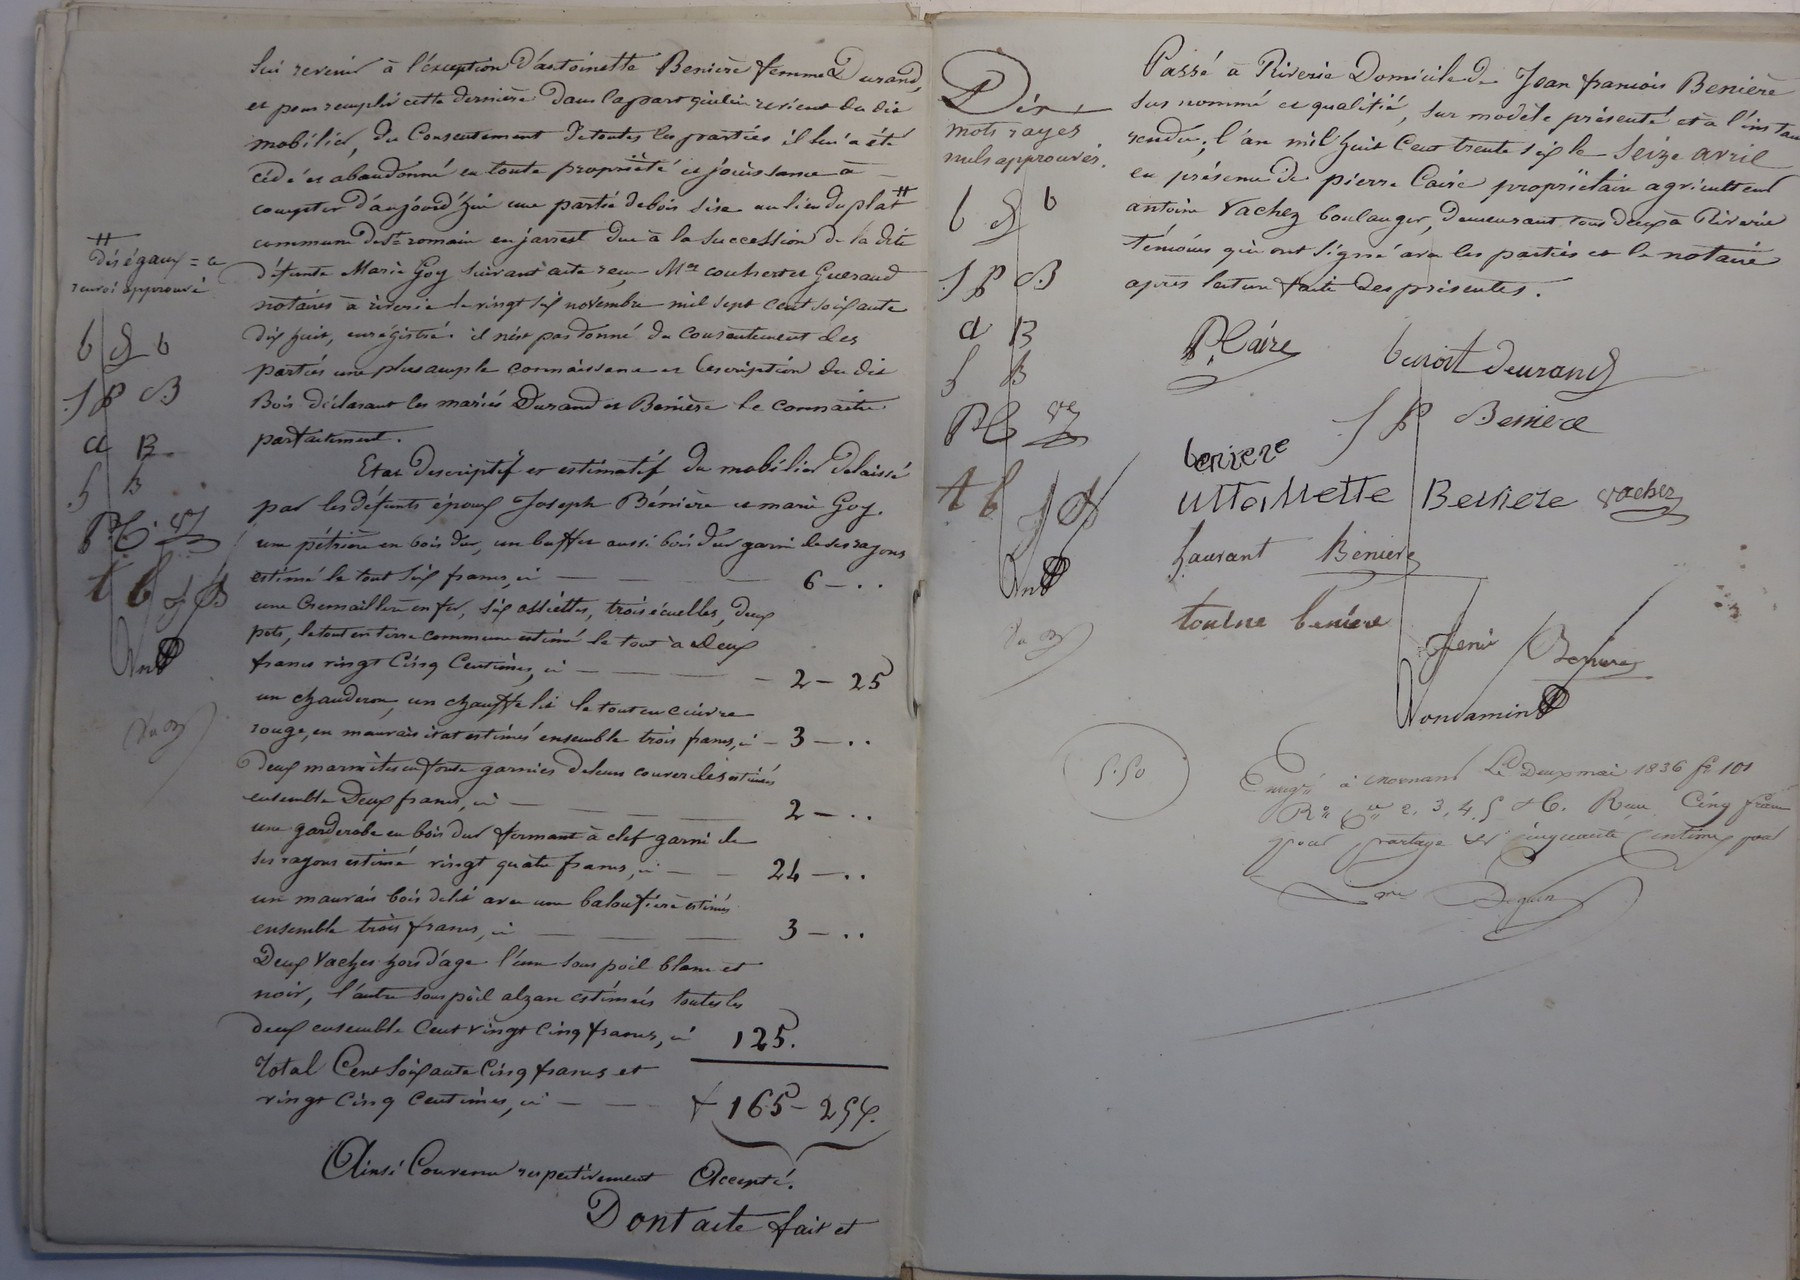 lui revenir à l'exception d'antoinette Benière femme Durand,
et pour remplir cette dernière dans la part qui lui revient du dit
mobilier, du Consentement de toutes les parties il lui a été
cédé et abandonné en toute propriété et jouissance à
compter d'aujourd'hui une partie de bois sise au lieu du plat #
commune de St romain en jarrest due à la succession de la dite
défunte Marie Goy suivant acte reçu Mes couhert et Gueraud
notaires à riverie le vingt six novembre mil sept cent soixante
dix huit, enregistré. il n'est pas donné du consentement des
parties une plus ample connaissance et description du dit
Bois déclarant les mariés Durand et Benière le connaitre
parfaitement.
Etat Descriptif et estimatif du mobilier délaissé
par les défunts époux Joseph Bénière et marie Goy.
une pétrière en bois dur, un buffet aussi bois dur garni de ses rayons
estimé le tout six francs, ci — 6 — ..
une Cremaillère en fer, six assiettes, trois écuelles, deux
pots, le tout en terre commune estimé le tout à deux
francs vingt Cinq Centimes, ci — 2 — 25
un chauderon, un chauffe lit le tout en cuivre
rouge, en mauvais état estimés ensemble trois francs, ci — 3 — ..
deux marmites en fonte garnies de leurs couvercles estimés
ensemble Deux francs, ci — 2 — ..
une garderobe en bois dur fermant à clef garni de
ses rayons estimé vingt quatre francs, ci — 24 — ..
un mauvais bois de lit avec une baloufière estimés
ensemble trois francs, ci — 3 — ..
Deux Vaches hors d'age l'une sous poil blanc et
noir, l'autre sous poil alzan estimées toutes les
deux ensemble Cent vingt Cinq francs, ci 125.
Total Cent soixante Cinq francs et
vingt Cinq Centimes, ci — 165 — 25c.
Ainsi Convenu respectivement Accepté.
Dont acte fait et
#
dis égaux = a
renvoi approuvé
b D b
J P B
a B
J B
P. C. V
t b J B
Dix
mots rayés
nuls approuvés.
b D b
J P B
a B
J B
P C V
t b J B
Passé à Riverie Domicile de Jean françois Benière
sus nommé et qualifié, sur modèle présenté et à l'instant
rendu, l'an mil huit Cent trente six le seize avril
en présence de pierre Caire propriétaire agriculteur
antoine Vachez boulanger, demeurant tous deux à Riverie
témoins qui ont signé avec les parties et le notaire
après lecture faite des présentes.
P. Caire benoit Deurand
J P Beniere
beniere
antoinette Beniere Vachez
Laurant Béniere
toutne beniere
Beniere
5.50
Enregé à Mornant Le Deux mai 1836 fo 101
Ro Ces 2, 3, 4, 5 & 6. Reçu Cinq francs
pour partage et cinquante Centimes pour